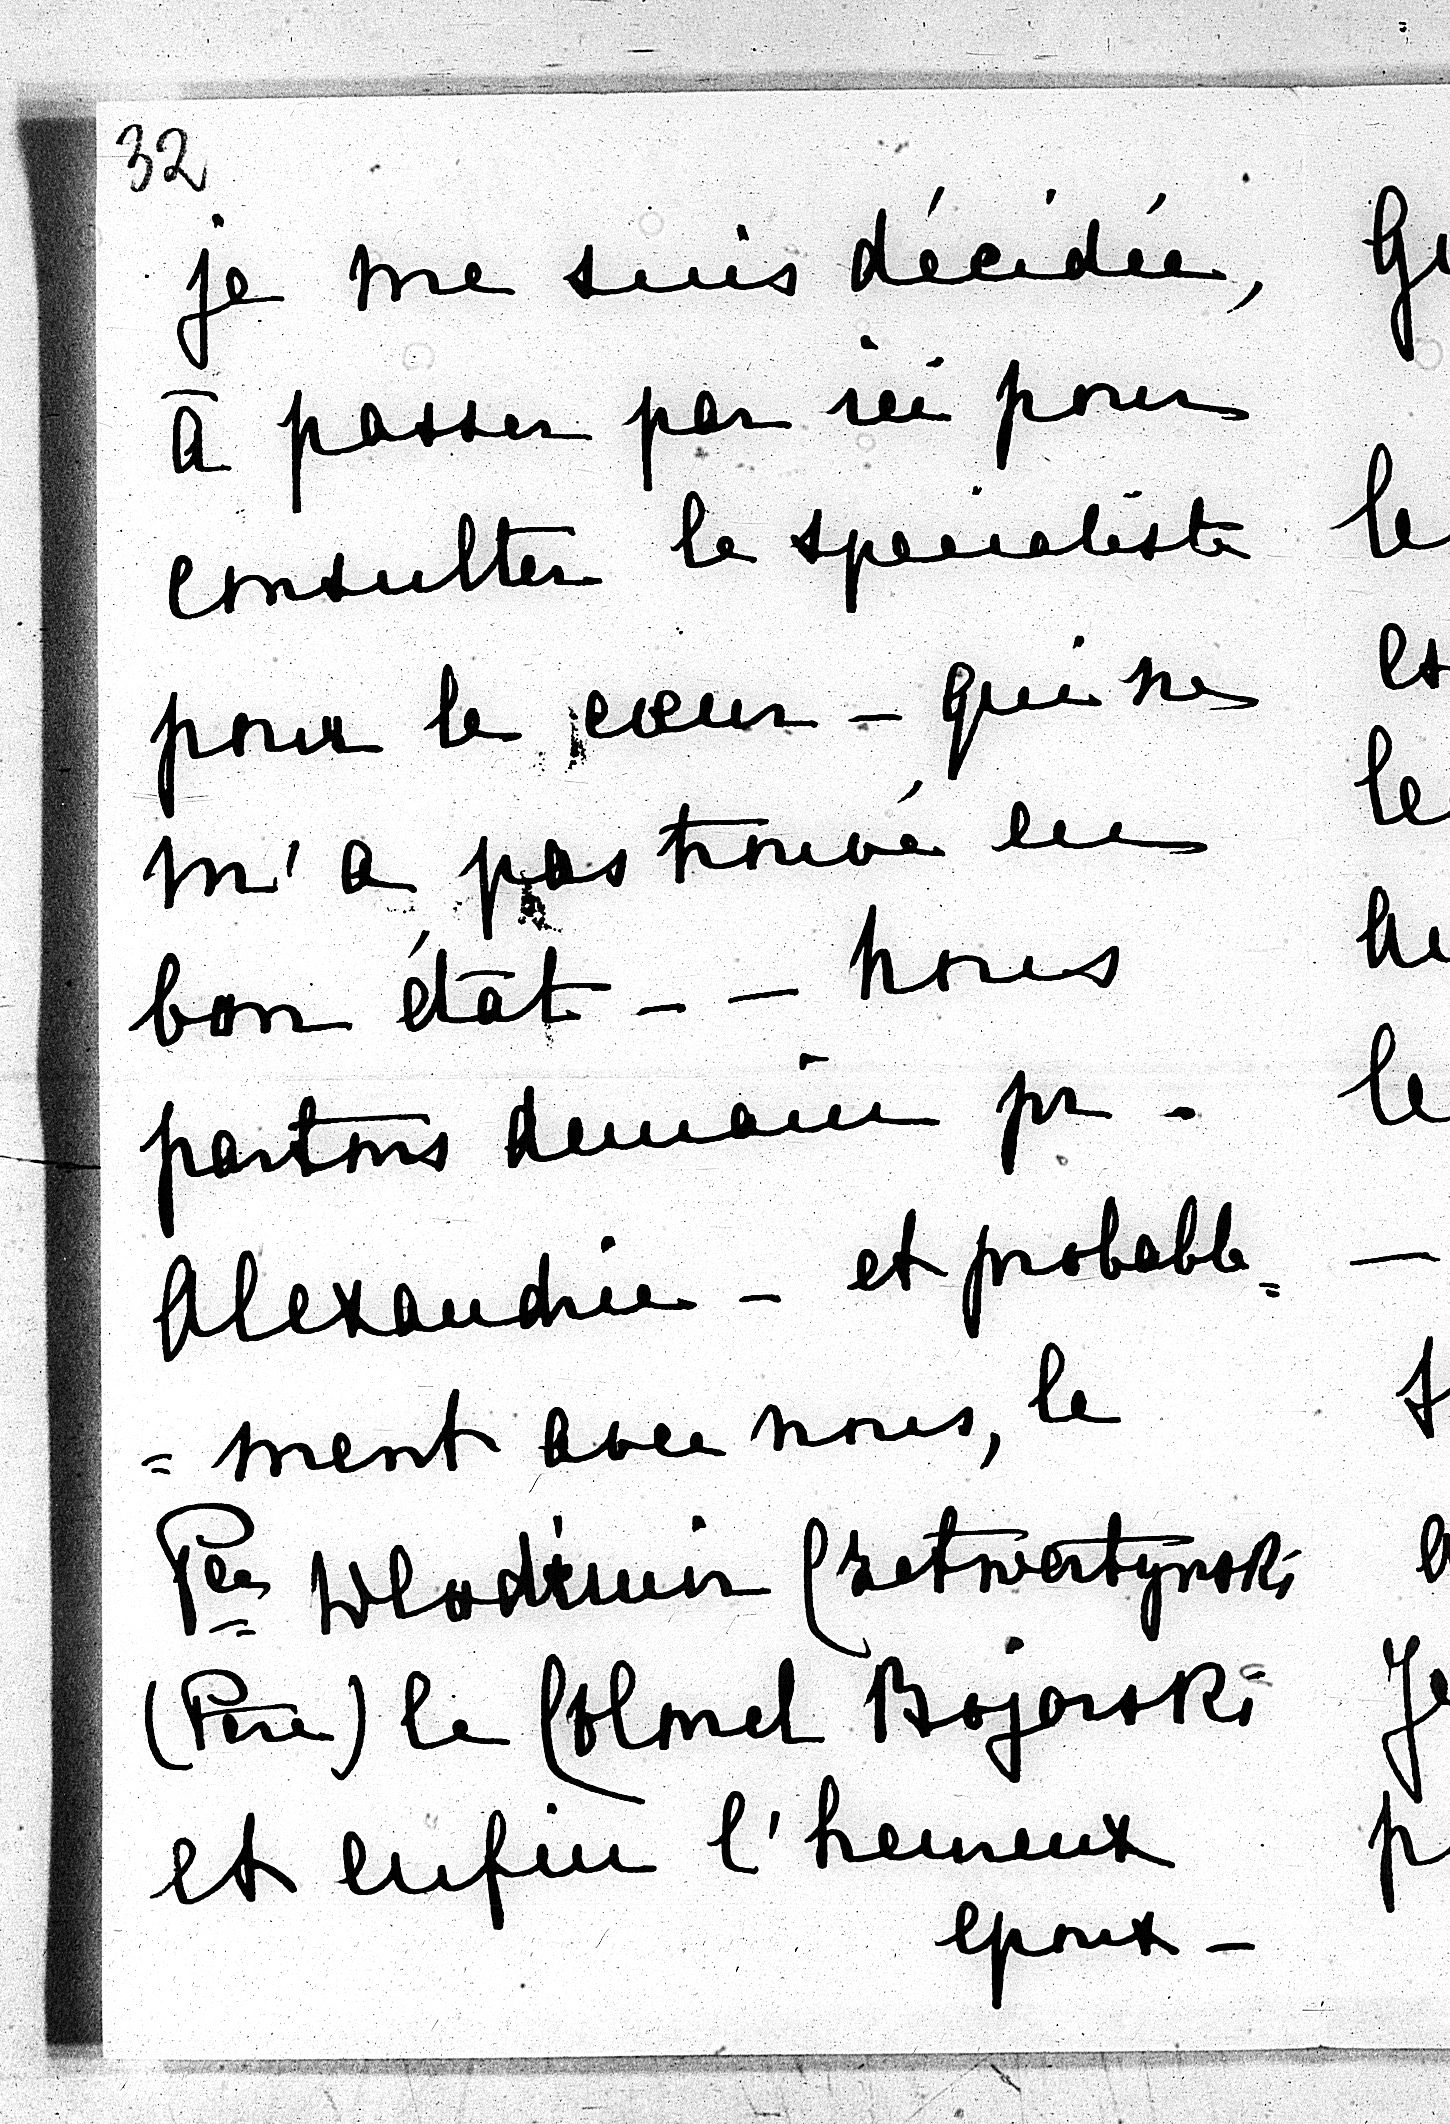 32
je me suis décidée,
à passer par ici pour
consulter le specialiste
pour le cœur - qui ne
m'a pas trouvé en
bon état - - nous
partons demain pr -
Alexandrie - et probable =
= ment avec nous, le
Pce Wlodimir Czetwertynski
(Père) le Colonel Bojarski
et enfin l'heureux
epoux -